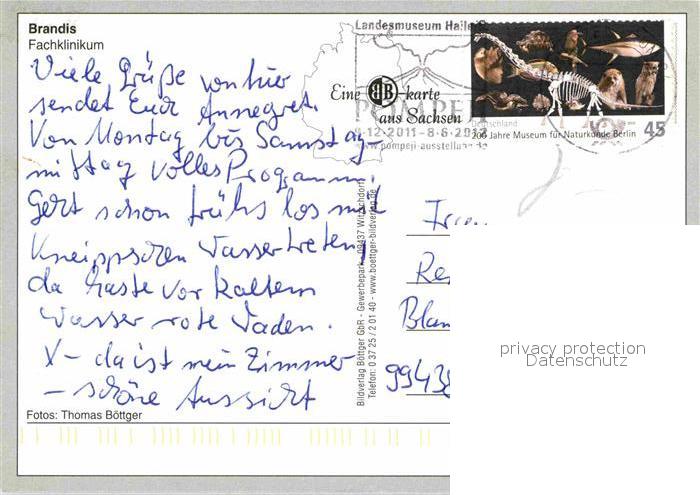 Brandis
Fachklinikum
Viele Grüße von hier
sendet Euch Annegret.
Von Montag bis Samstag-
mittag volles Programm.
Geht schon frühs los mit
Kneippschen Wassertreten,
da haste vor kaltem
Wasser rote Waden.
X - da ist mein Zimmer
- schöne Aussicht
Fotos: Thomas Böttger
Eine BB-karte
aus Sachsen
Bildverlag Böttger GbR - Gewerbepark - 09437 Witzschdorf
Telefon: 0 37 25 / 2 01 40 - www.boettger-bildverlag.de
Landesmuseum Halle
POMPEJI
-12-2011 - 8-6-20
www.pompeji-ausstellung.de
Deutschland
200 Jahre Museum für Naturkunde Berlin
45
Re
Blan
9943
privacy protection
Datenschutz